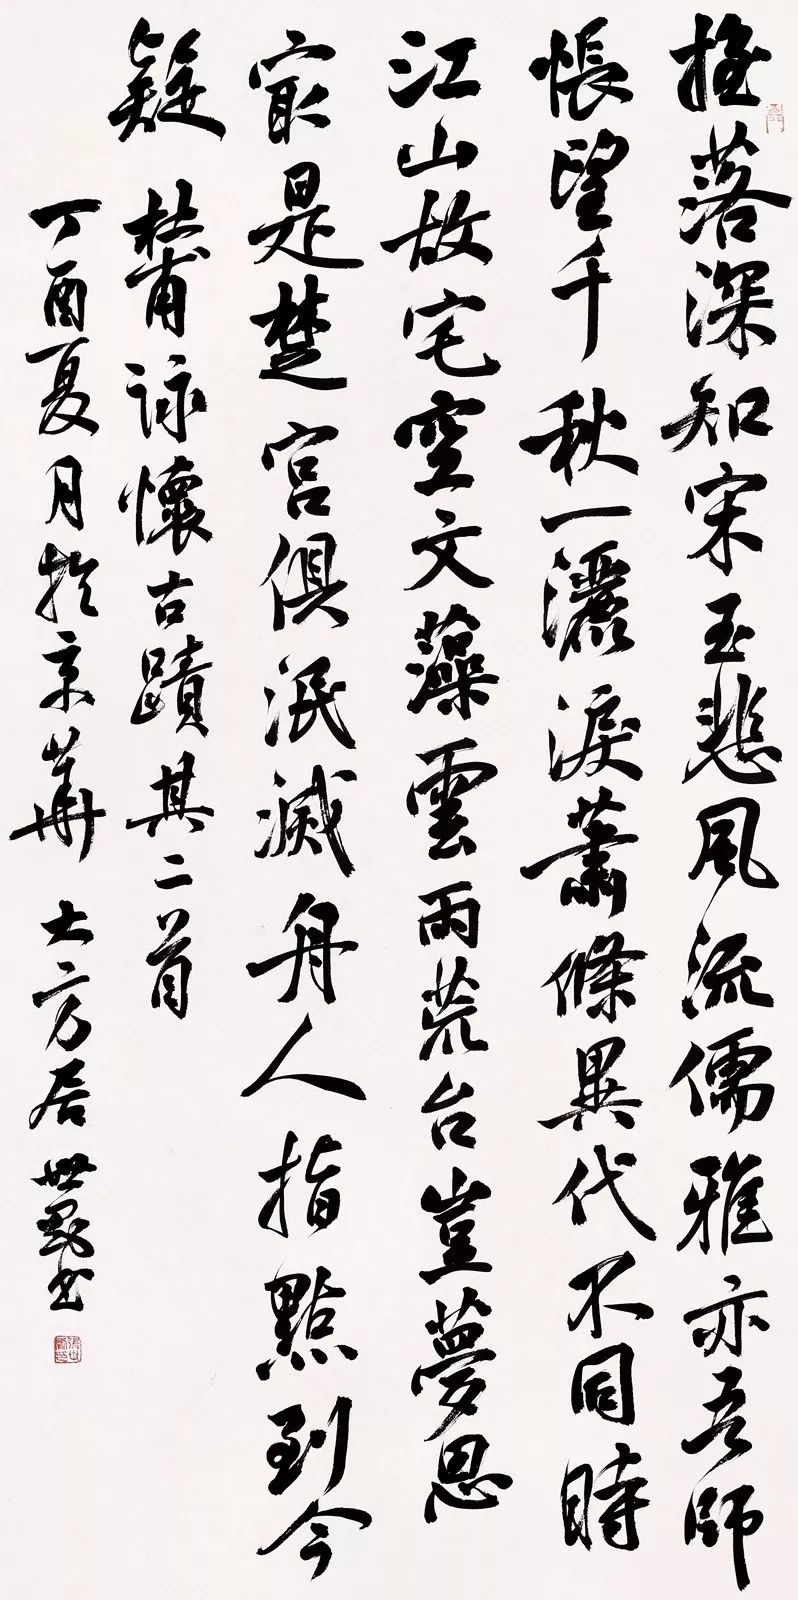 摇落深知宋玉悲風流儒雅亦吾師
悵望千秋一灑淚蕭條異代不同時
江山故宅空文藻雲雨荒台豈夢思
㝡是楚宮俱泯滅舟人指點到今
疑 杜甫詠懷古蹟其二首
丁酉夏月於京華 大方居 世 書